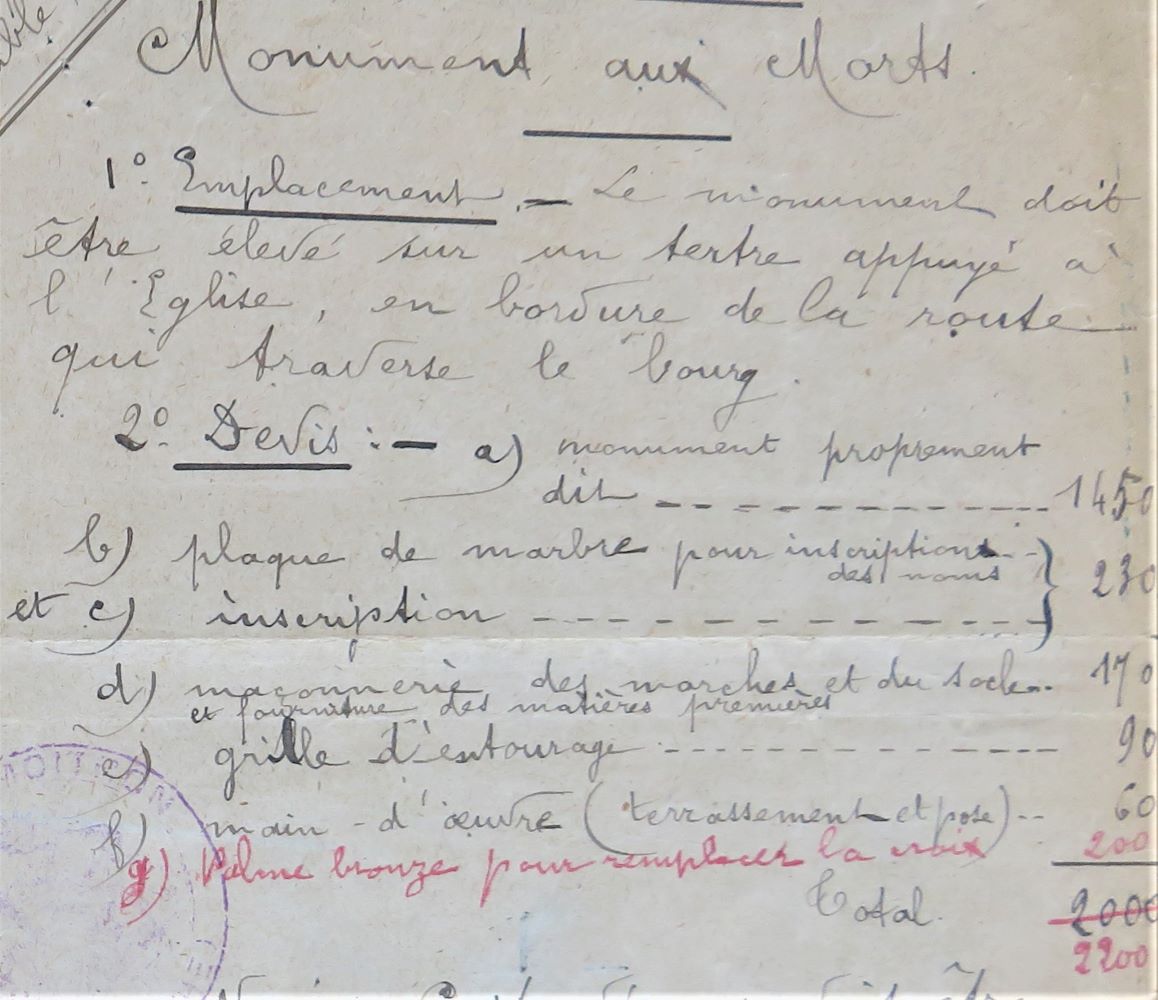 Monument aux Morts.
1°. Emplacement. — Le monument doit
être élevé sur un tertre appuyé à
l'Eglise, en bordure de la route
qui traverse le bourg.
2°. Devis : — a) monument proprement
dit ------------ 1450
b) plaque de marbre pour inscriptions -- } 230
des noms
et c) inscription ------------
d) maçonnerie, des marches et du socle .. 170
et fourniture des matières premières
e) grille d'entourage ------------ 90
f) main-d'œuvre (terrassement et pose) -- 60
g) Palme bronze pour remplacer la croix 200
Total. 2000
2200